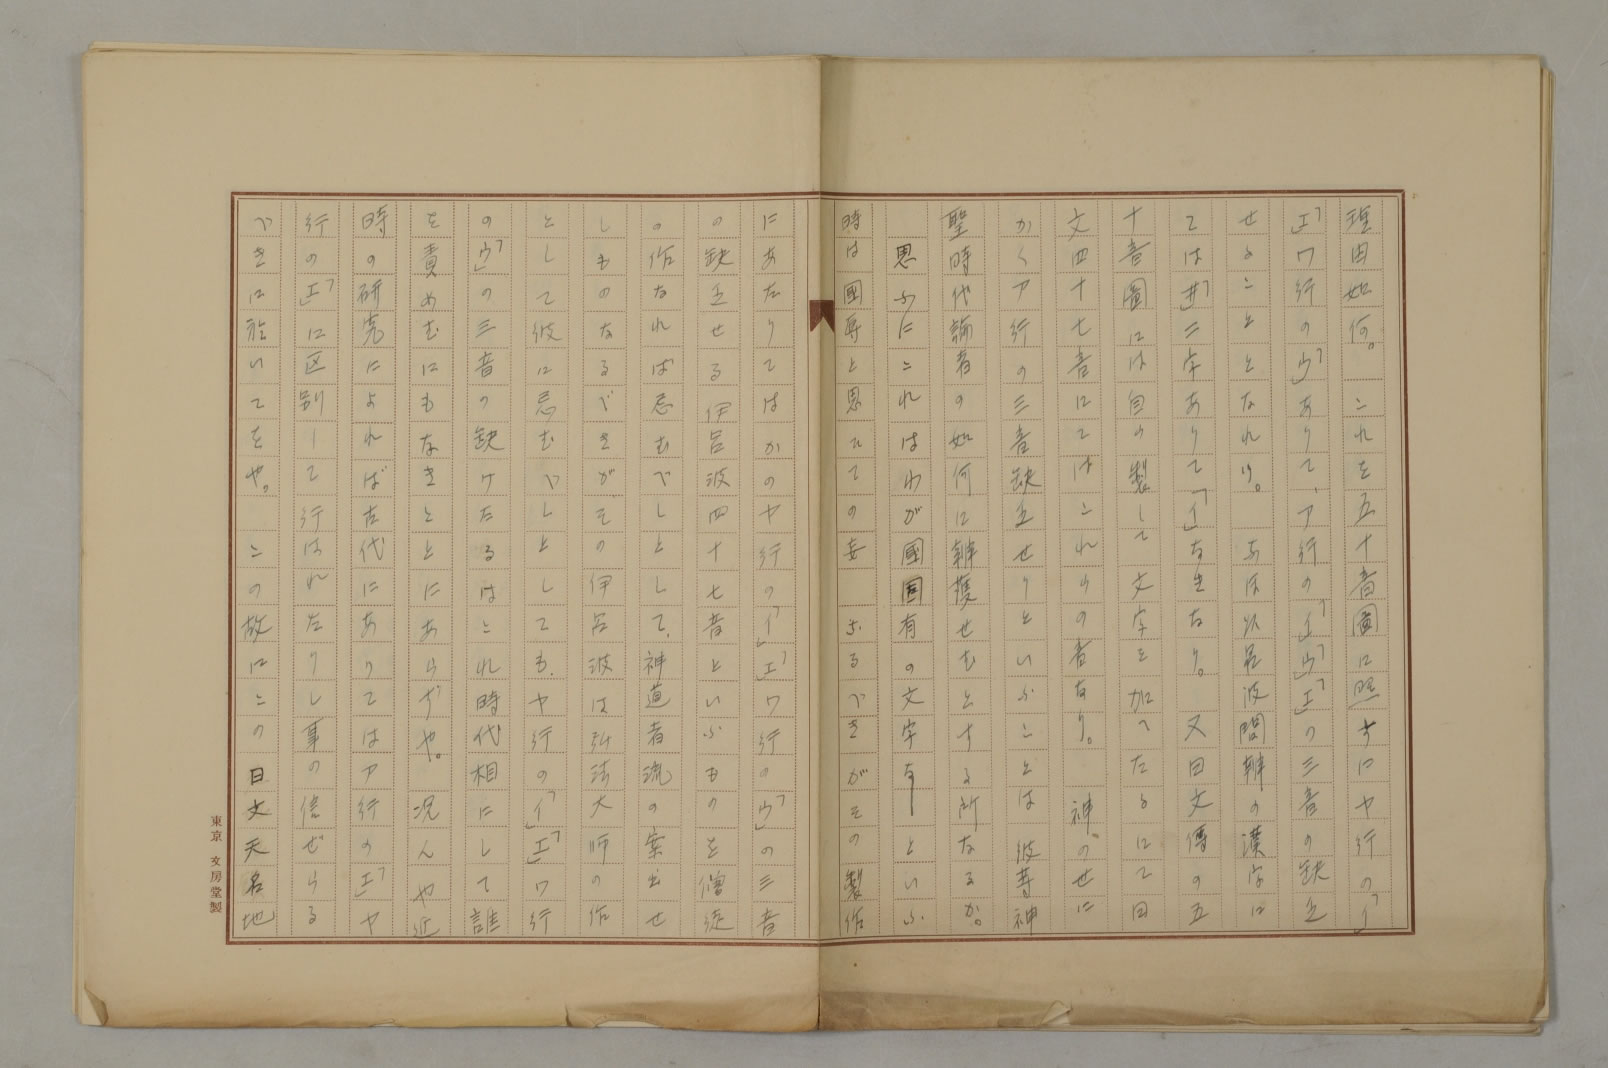 理由如何。　これを五十音圖に照すにヤ行の「イ」
「エ」ワ行の「ウ」ありて、ア行の「イ」「ウ」「エ」の三音の缺乏
せることとなれり。　なほ以呂波問辨の漢字に
ては「井」三字ありて「イ」なきなり。　又日文傳の五
十音圖には自ら製して文字を加へたるにて日
文四十七音にてはこれらの音なり。　神のせに
かくア行の三音缺乏せりといふことは彼等神
聖時代論者の如何に辨護せむとする所なるか。
　思ふにこれはわが國固有の文字なしといふ
時は國辱と思ひての妄　なるべきがその製作
にあたりてはかのヤ行の「イ」「エ」ワ行の「ウ」の三音
の缺乏せる伊呂波四十七音といふものを僧徒
の作なれば忌むべしとして、神道者流の案出せ
しものなるべきがその伊呂波は弘法大師の作
として彼に忌むべしとしても、ヤ行の「イ」「エ」ワ行
の「ウ」の三音の缺けたるはこれ時代相にして誰
を責めむにもなきことにあらずや。　況んや近
時の研究によれば古代にありてはア行の「エ」ヤ
行の「エ」に区別して行はれたりし事の信ぜらる
べきに於いてをや。　この故にこの日文天名地
東京　文房堂製